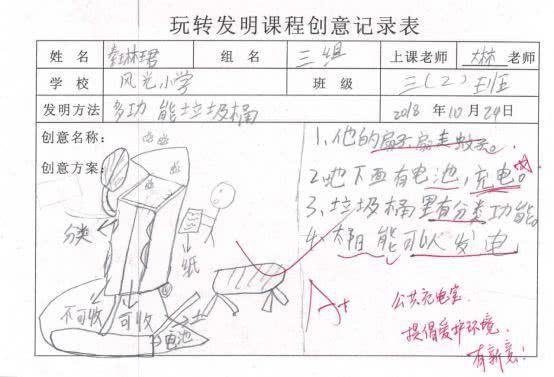 玩转发明课程创意记录表
姓名 琳珺 组名 三组 上课老师 林 老师
学校 风光小学 班级 三(2)班
发明方法 多功能垃圾桶 2018 年 10 月 24 日
创意名称:
创意方案:
1、他的扇子扇走蚊子。
2、地下面有电池,充电。
3、垃圾桶里有分类功能。
4、太阳能可以发电
分类
纸
不可收
可收
土
电池
A+
公共充电
提倡爱护环境.
有新意!